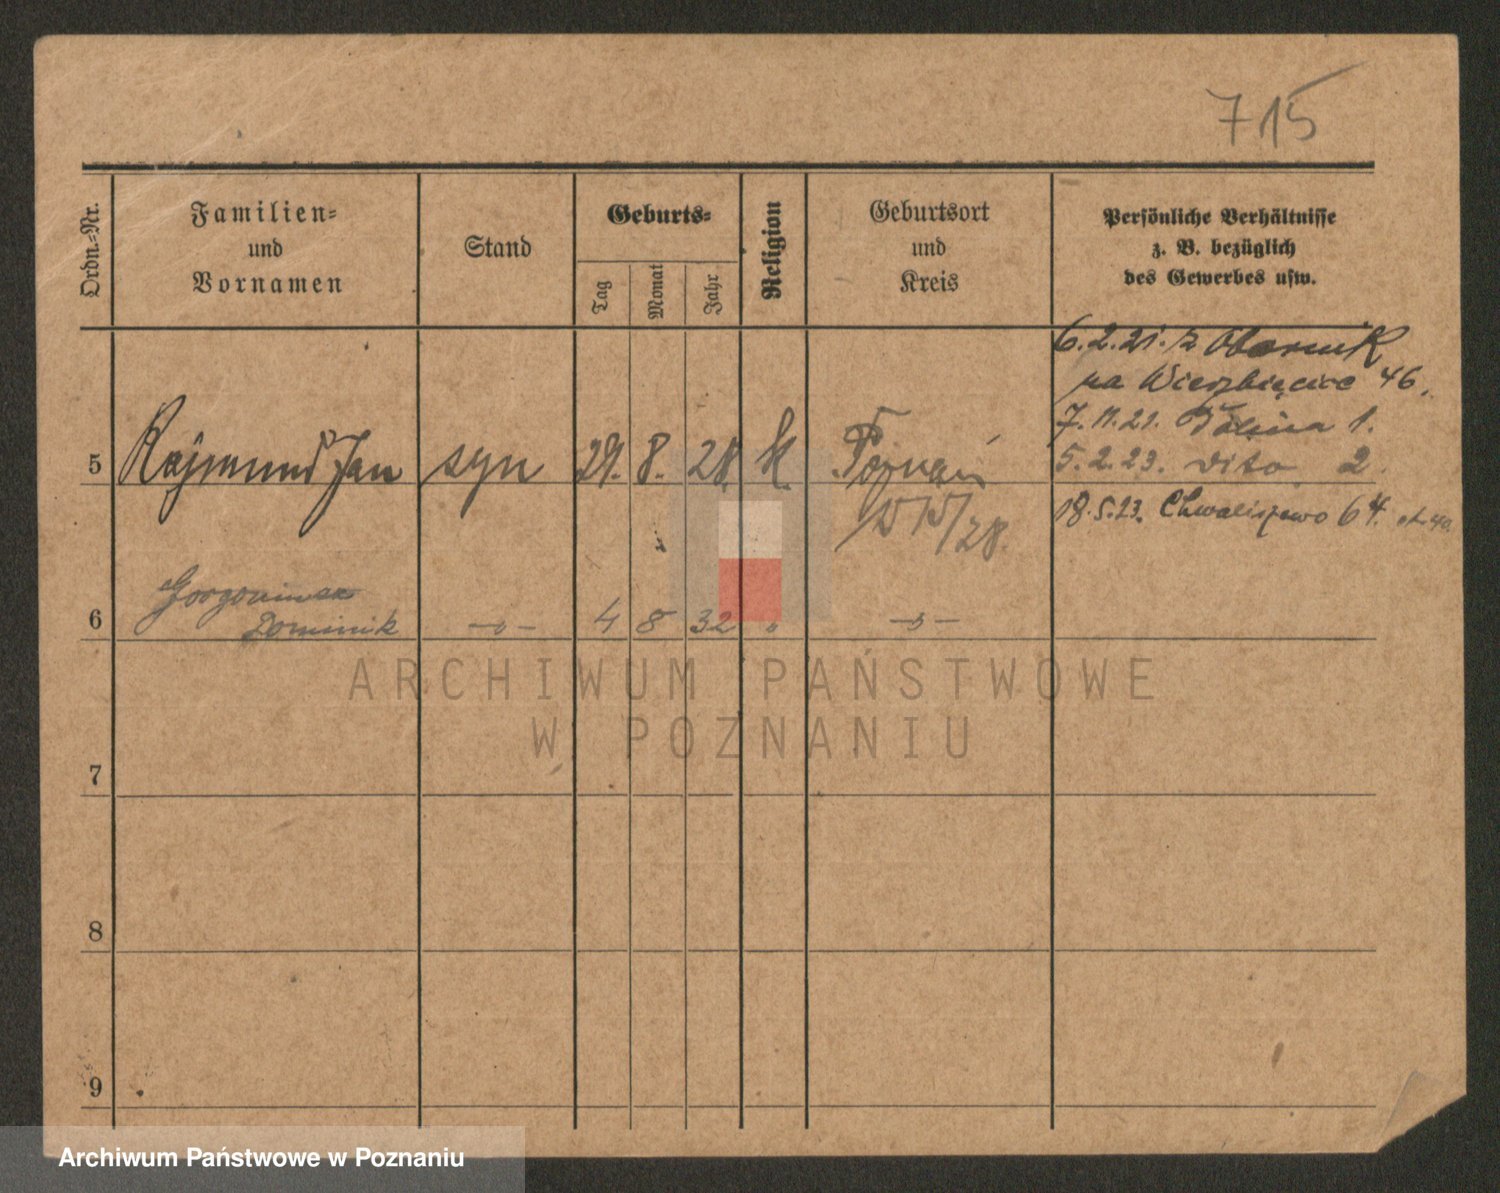 715
Ordn.=Nr.
Familien=
und
Vornamen
Stand
Geburts=
Tag
Monat
Jahr
Religion
Geburtsort
und
Kreis
Persönliche Verhältnisse
z. B. bezüglich
des Gewerbes usw.
6.2.21. z Obornik
na Wierzbięcice 46.
7.11.21. 1.
5.2.23. dito 2.
5 Rajmund Jan syn 29. 8. 28. k. Poznań
18.5.23. Chwaliszewo 64.
6 Dominik 4 8 32 "
7
8
9
ARCHIWUM PAŃSTWOWE
W POZNANIU
Archiwum Państwowe w Poznaniu